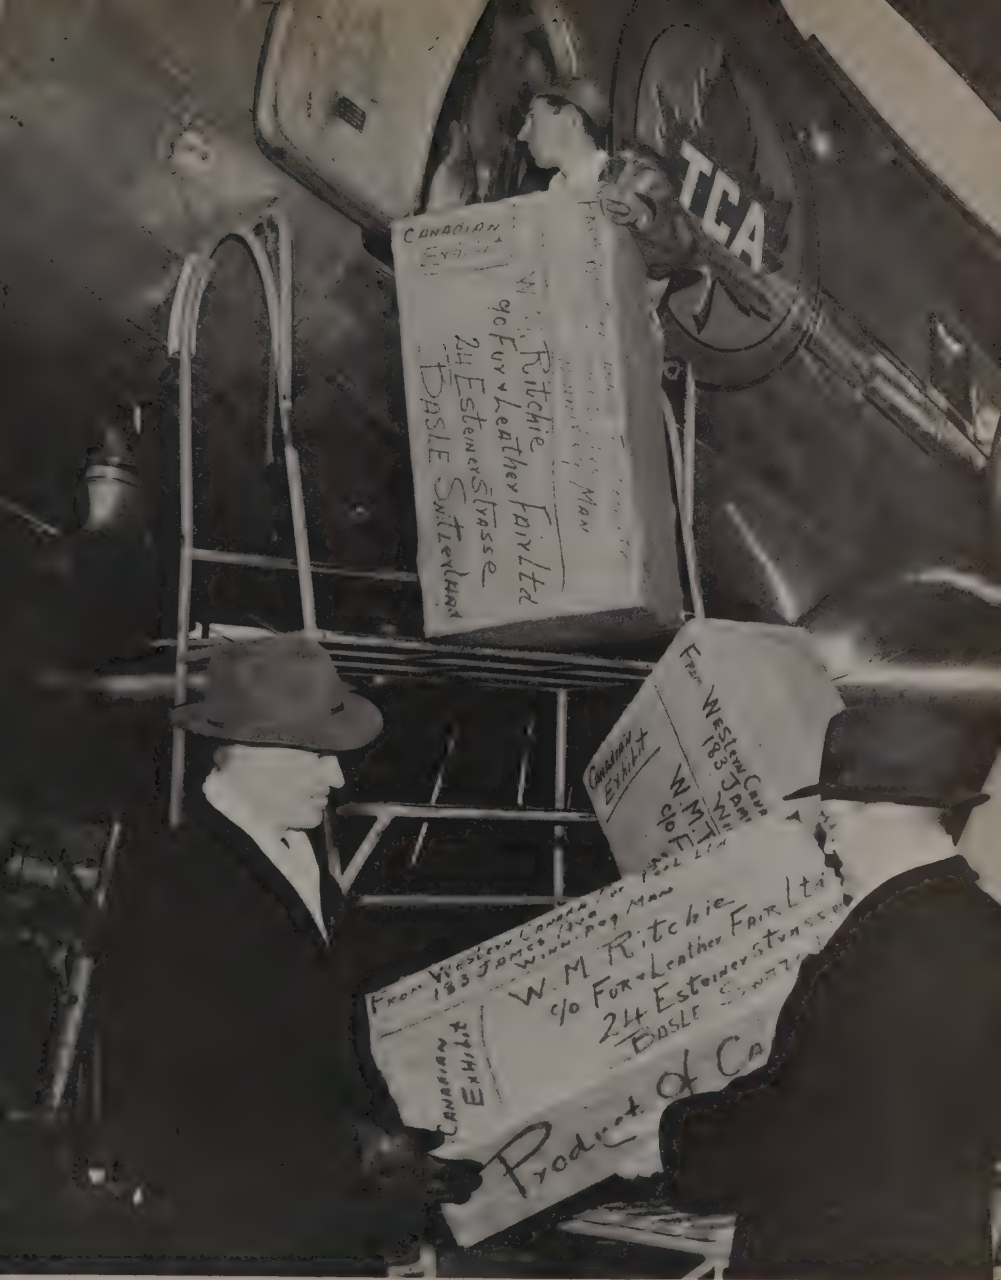 TCA
CANADIAN
Exhibit
MAN
W. Ritchie
c/o Fur & Leather FAIR Ltd
24 Esteinerstrasse
BASLE Switlerland
From WESTern CANA
183 JAM
CANADIAN
Exhibit
W. M.
c/o F
From WESTern CANADA
183 JAMES
WINNIPEG MAN
W. M Ritchie
c/o Fur & Leather FAIR Lt
24 Esteinerstrasse
BASLE
CANADIAN
ExHibit
Product of CA